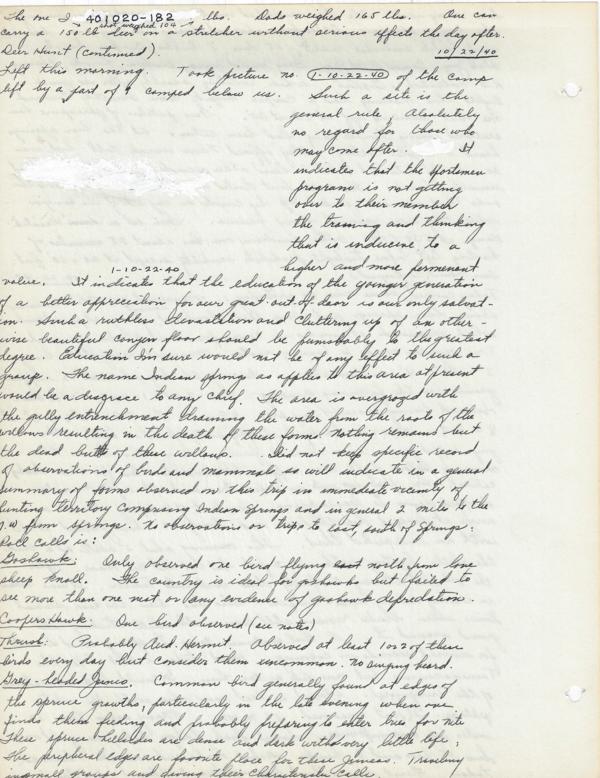 The one I 401020-182 lbs. Dads weighed 165 lbs. One can
shot weighed 104
carry a 150 lb deer on a stretcher without serious effects the day after.
Deer Hunt (continued). 10/22/40
Left this morning. Took picture no. 1-10-22-40 of the camp
left by a part of 9 camped below us. Such a site is the
general rule. Absolutely
no regard for those who
may come after. It
indicates that the sportsmen
program is not getting
over to their member
the training and thinking
that is inducive to a
1-10-22-40 higher and more permanent
value. It indicates that the education of the younger generation
of a better appreciation for our great out-of-door is our only salvat-
ion. Such a ruthless devastation and cluttering up of an other-
wise beautiful canyon floor should be punishably to the greatest
degree. Education I'm sure would not be of any effect to such a
group. The name Indian springs as applies to this area at present
would be a disgrace to any Chief. The area is overgrazed with
the gully entrenchment draining the water from the roots of the
willows resulting in the death of these forms. Nothing remains but
the dead butts of these willows. Did not keep specific record
of observations of birds and mammals so will indicate in a general
summary of forms observed on this trip in immediate vicinity of
hunting territory comprising Indian Springs and in general 2 mile to the
N.W from springs. No observations or trips to east, south of Springs:
Roll calls is:
Goshawk: Only observed one bird flying east north from lone
sheep knoll. The country is ideal for goshawks but failed to
see more than one nest or any evidence of goshawk depredation.
Coopers Hawk: One bird observed (see notes)
Thrush: Probably Aud. Hermit. Observed at least 1 or 2 of these
birds every day but consider them uncommon. No singing heard.
Gray-headed Junco. Common bird generally found at edges of
the spruce growths, particularly in the late evening when one
finds them feeding and probably preparing to enter trees for nite
These spruce hillsides are dense and dark with very little life;
the peripheral edges are favorite place for these Juncos. Traveling
in small groups and giving their charateristic calls.